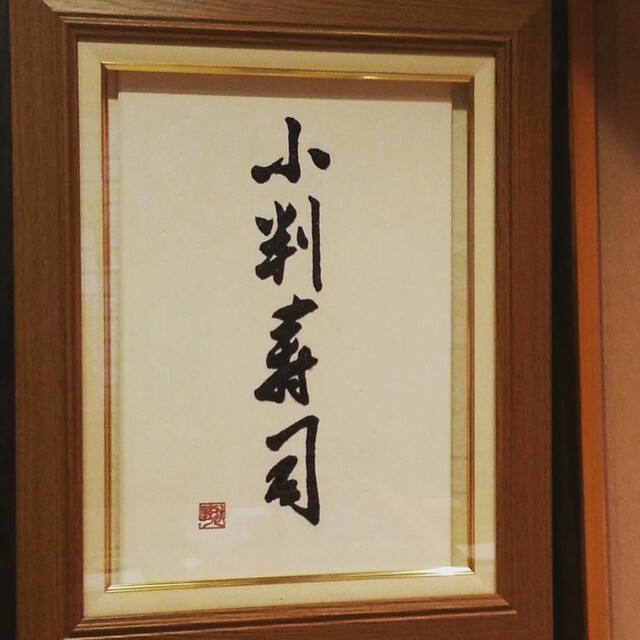 小判寿司